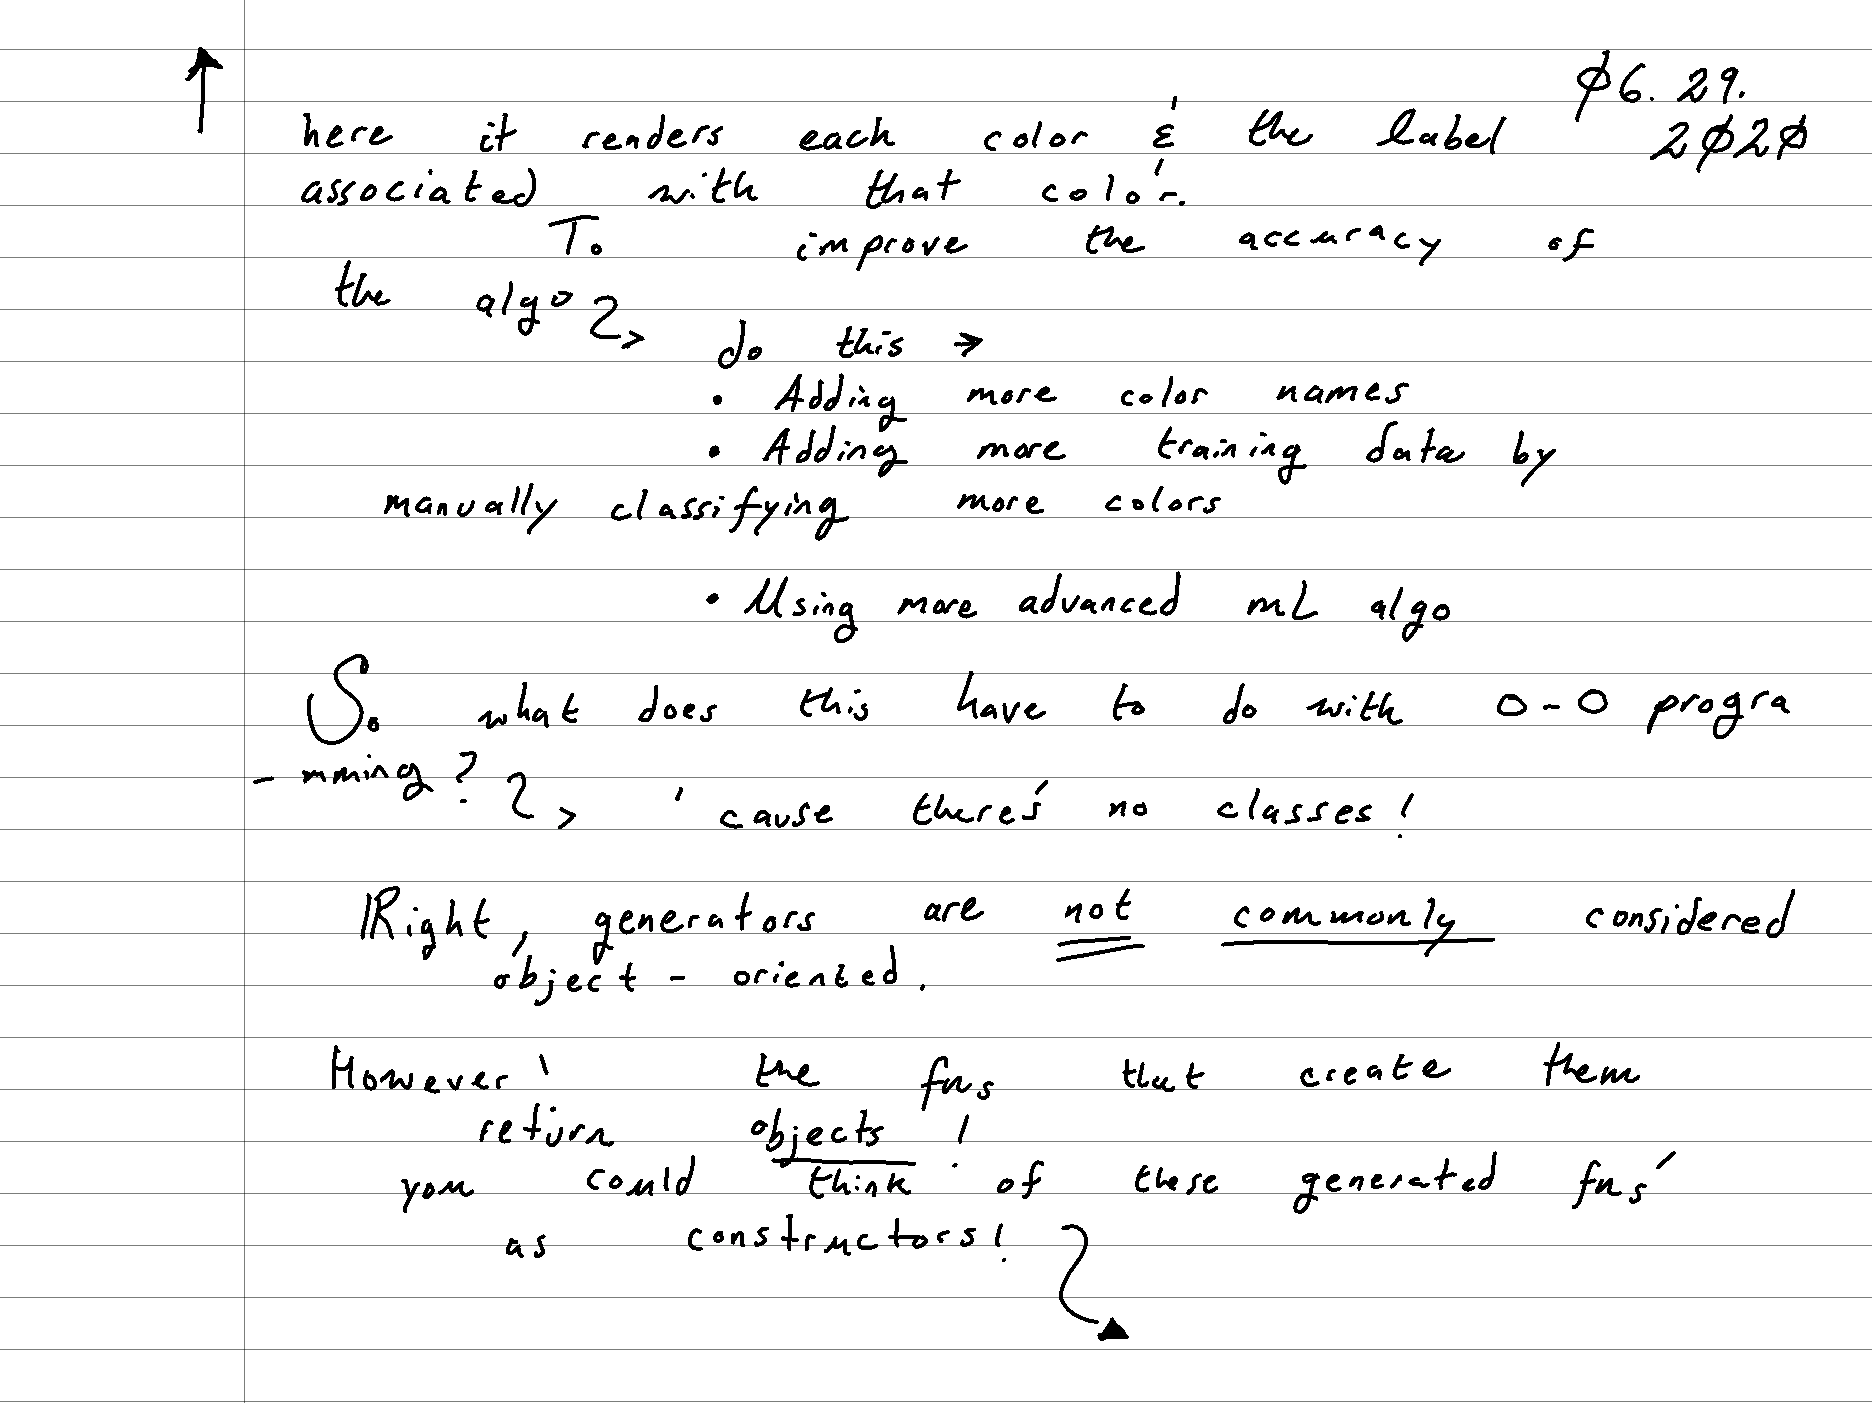 Ø6. 29.
here it renders each color & the label 2Ø2Ø
associated with that color.
To improve the accuracy of
the algo
do this →
• Adding more color names
• Adding more training data by
manually classifying more colors
• Using more advanced mL algo
So what does this have to do with O-O progra
- mming?
'cause there's no classes!
Right, generators are not commonly considered
object - oriented.
However' the fns that create them
return objects!
you could think of these generated fns'
as constructors!